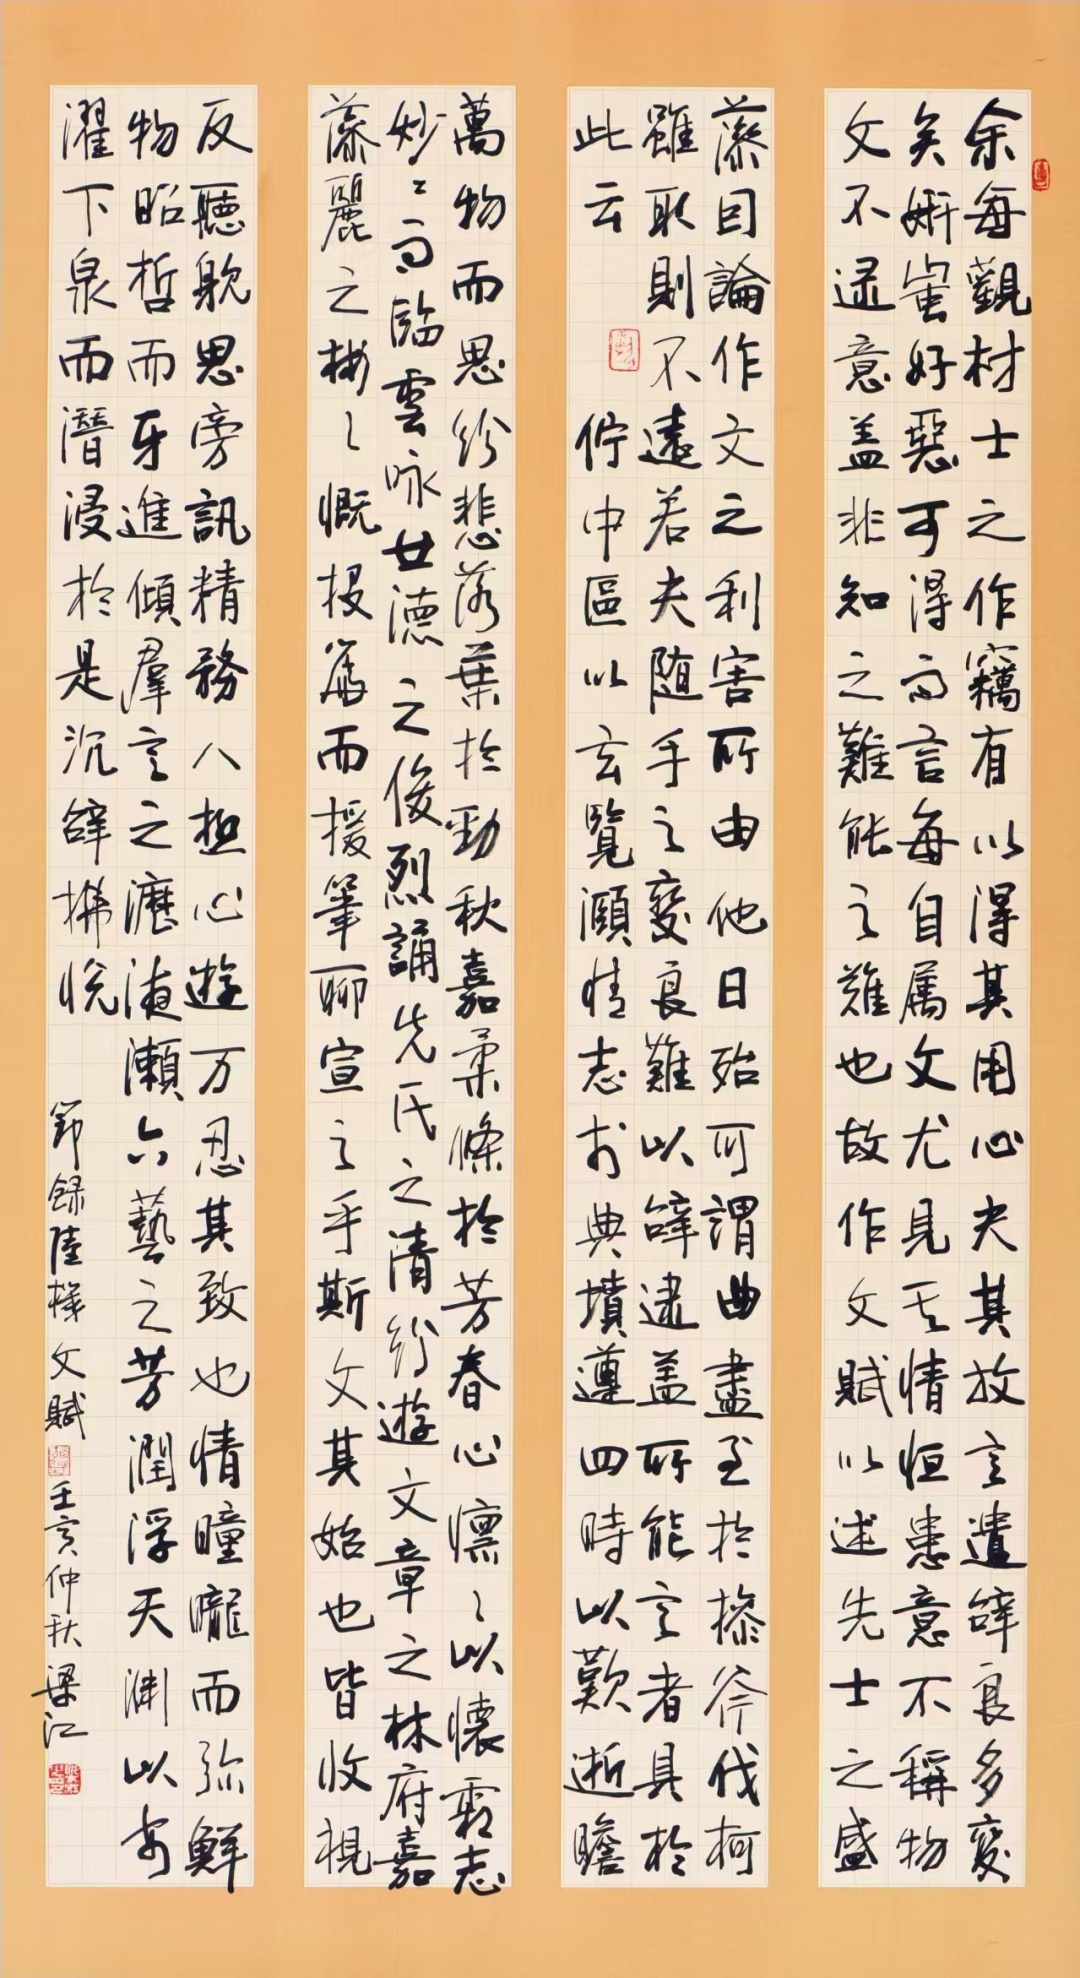 余每觀材士之作竊有以得其用心夫其放言遣辭良多變
矣妍蚩好惡可得而言每自属文尤見其情恒患意不稱物
文不逮意盖非知之難能之難也故作文賦以述先士之盛
藻因論作文之利害所由他日殆可謂曲盡至於操斧伐柯
雖取則不遠若夫随手之變良難以辭逮盖所能言者具於
此云 佇中區以玄覽頤情志於典墳遵四時以歎逝瞻
萬物而思紛悲落葉於勁秋嘉柔條於芳春心懔々以懷霜志
妙々而臨雲咏世德之俊烈誦先民之清芬遊文章之林府嘉
藻麗之彬々慨投篇而援筆聊宣之乎斯文其始也皆收視
反聽躭思旁訊精務八極心遊万忍其致也情曈曨而弥鮮
物昭哲而互進傾羣言之瀝液潄六藝之芳潤浮天淵以安
濯下泉而潛浸於是沉辭拂悦
節録陸機文賦 壬寅仲秋梁江